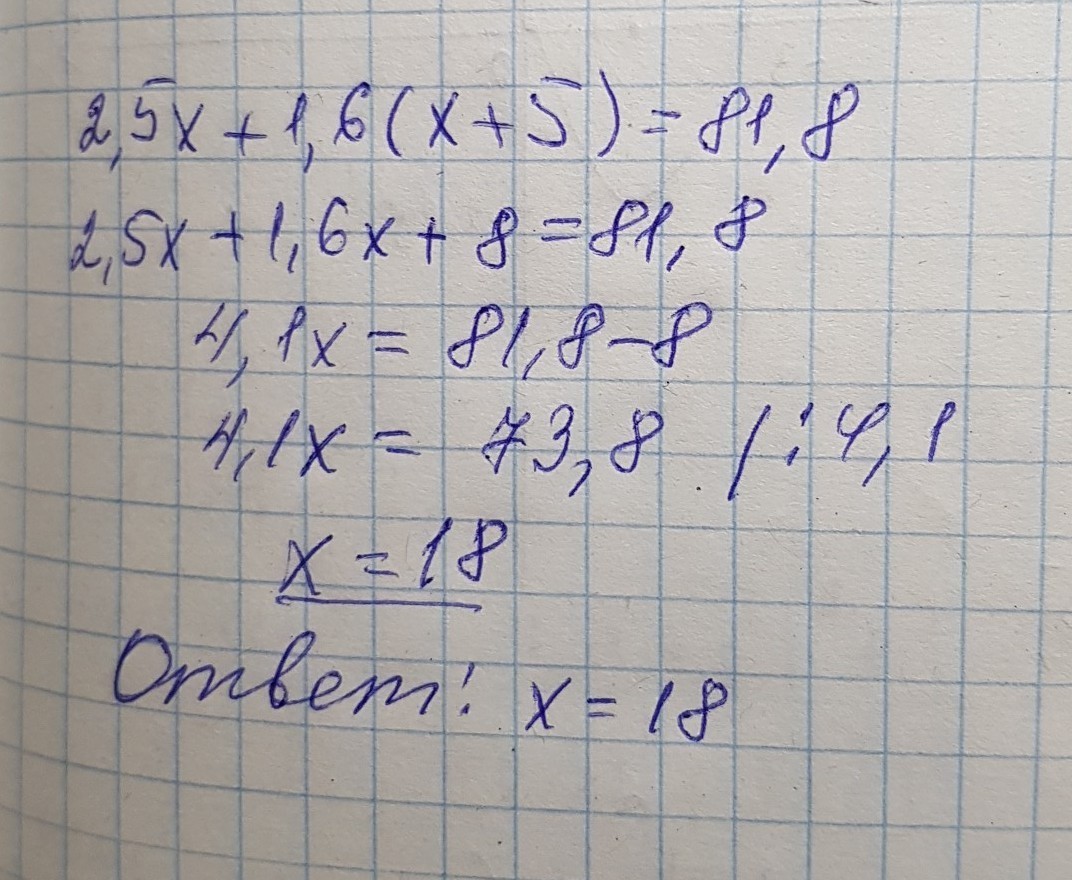 2,5x+1,6(x+5)=81,8
2,5x+1,6x+8=81,8
4,1x=81,8-8
4,1x=73,8 /:4,1
x=18
Ответ: x=18